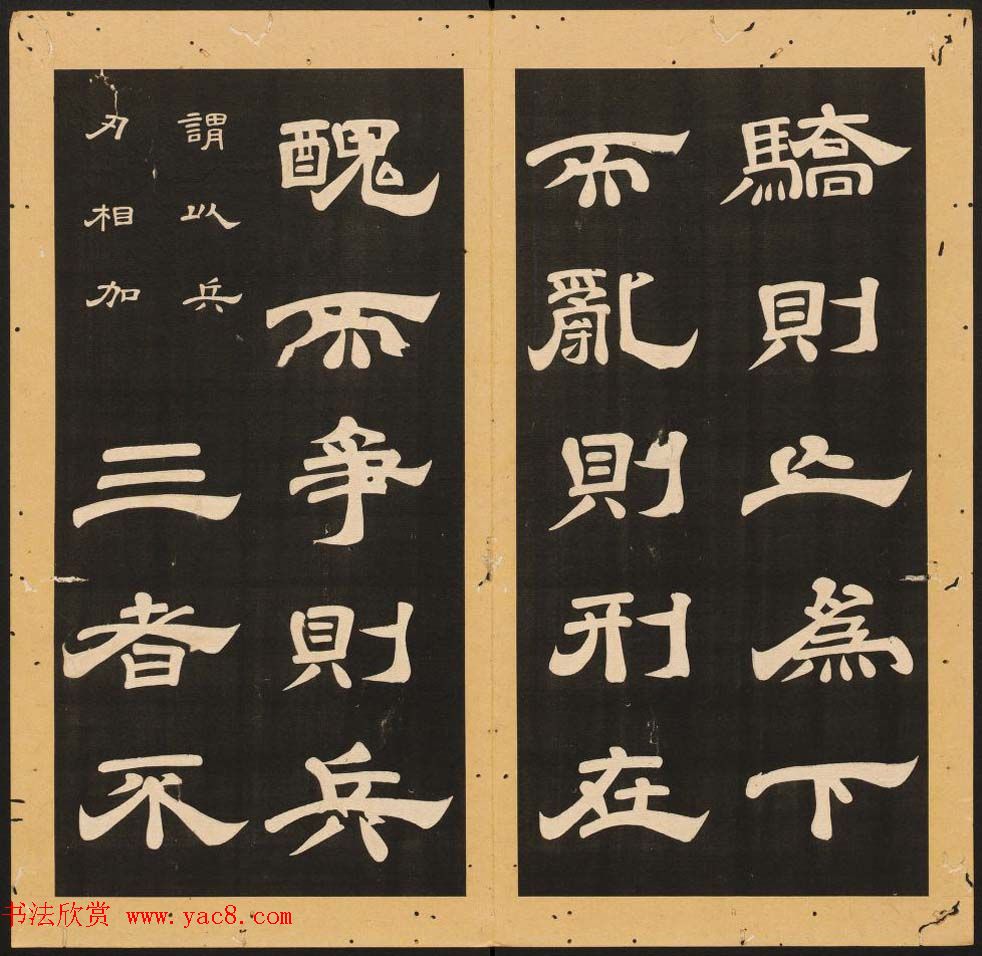 驕則亡爲下
而亂則刑在
醜而爭則兵
謂以兵
刃相加
三者不
书法欣赏 www.yac8.com